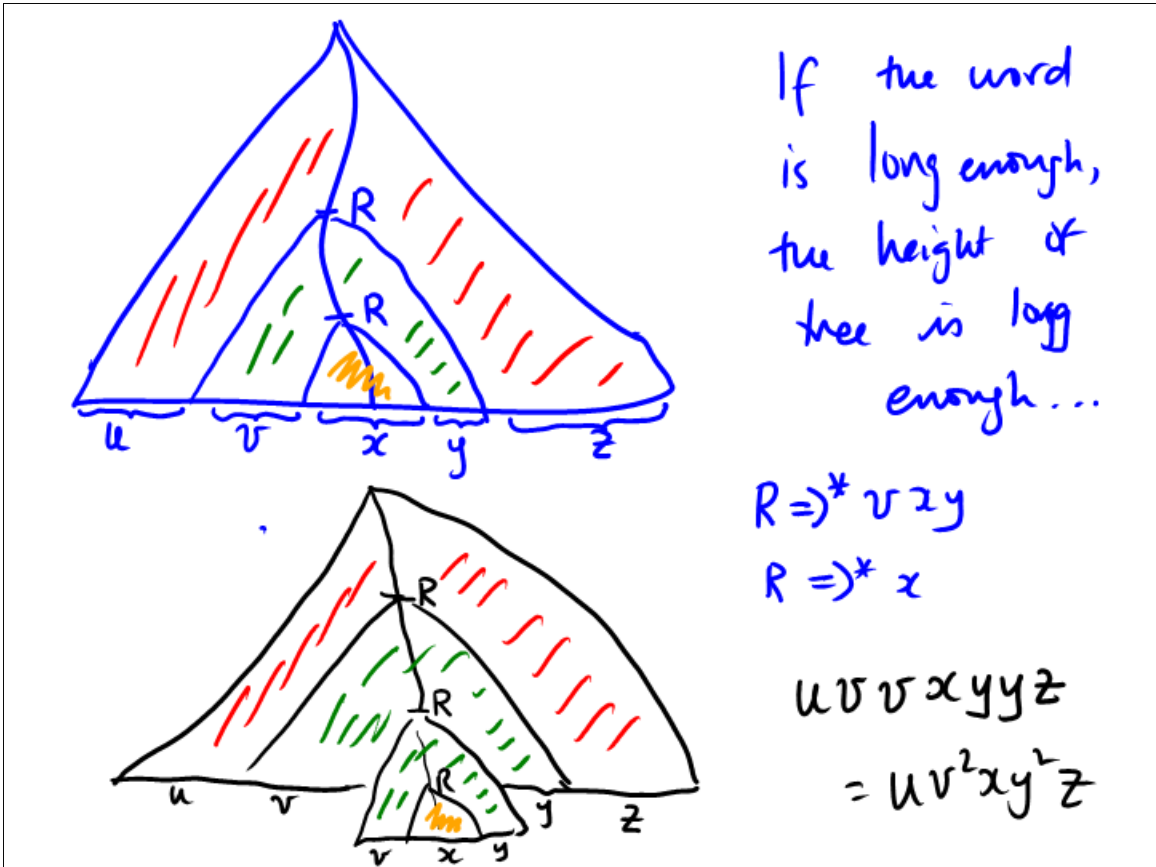 If the word
is long enough,
the height of
tree is logg
enough...
R
R
u v x y z
R ⇒* v x y
R ⇒* x
R
R
R
u v y z
v x y
u v v x y y z
= u v² x y² z